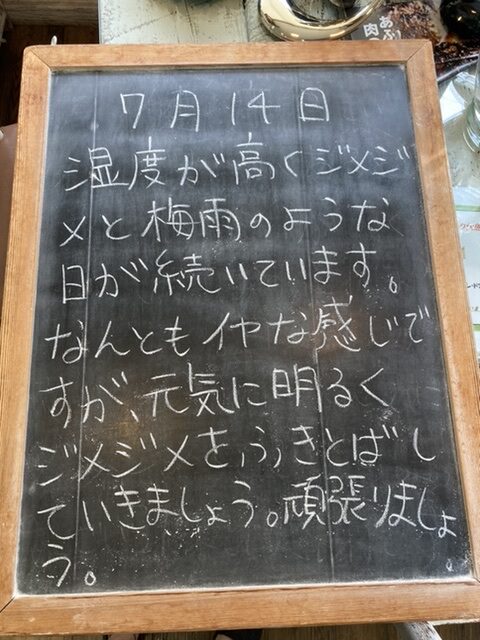 7月14日
湿度が高くジメジ
メと梅雨のような
日が続いています。
なんともイヤな感じで
すが、元気に明るく
ジメジメをふきとばし
ていきましょう。頑張りましょ
う。
あぶり
肉